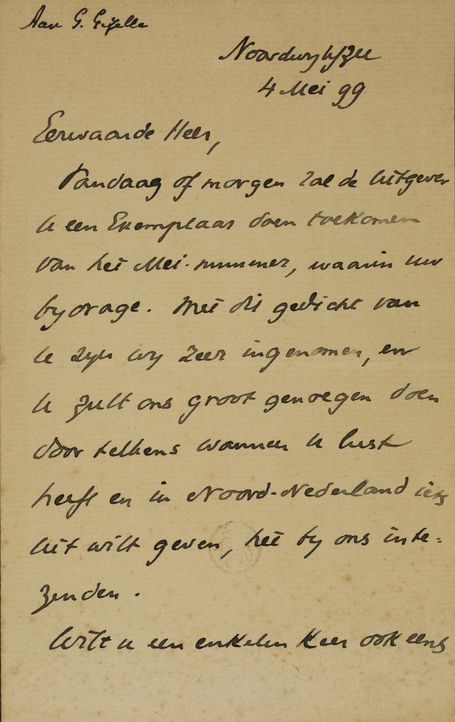 Aan G. Gezelle
Noordwyk/Zee
4 Mei 99
Eerwaarde Heer,
Vandaag of morgen zal de Uitgever
U een Exemplaar doen toekomen
van het Mei-nummer, waarin uw
bydrage. Met dit gedicht van
U zyn wy zeer ingenomen, en
U zult ons groot genoegen doen
door telkens wanneer U lust
heeft en in Noord-Nederland iets
uit wilt geven, het by ons in te-
zenden.
Wilt U een enkelen Keer ook eens